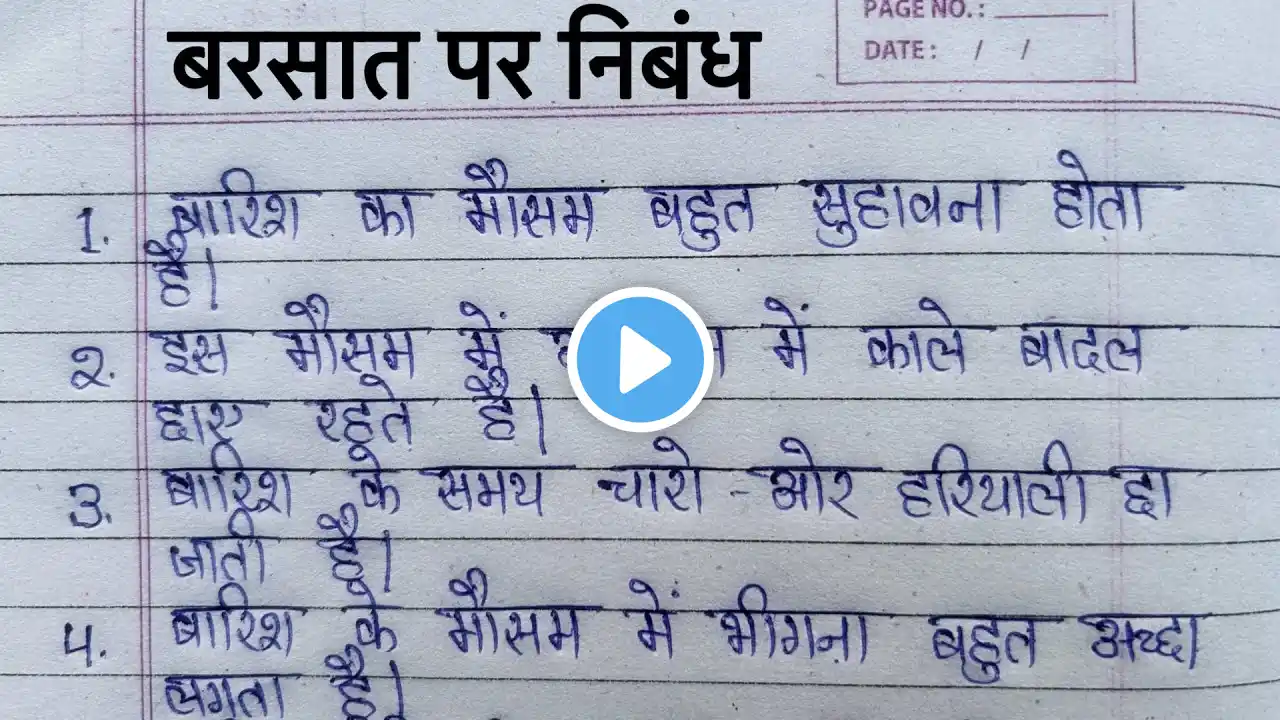 PAGE NO. :
DATE : / /
बरसात पर निबंध
1. बारिश का मौसम बहुत सुहावना होता
है।
2. इस मौसम में में काले बादल
छाए रहते है।
3. बारिश के समय चारो - ओर हरियाली छा
जाती है।
4. बारिश के मौसम में भीगना बहुत अच्छा
लगता है।